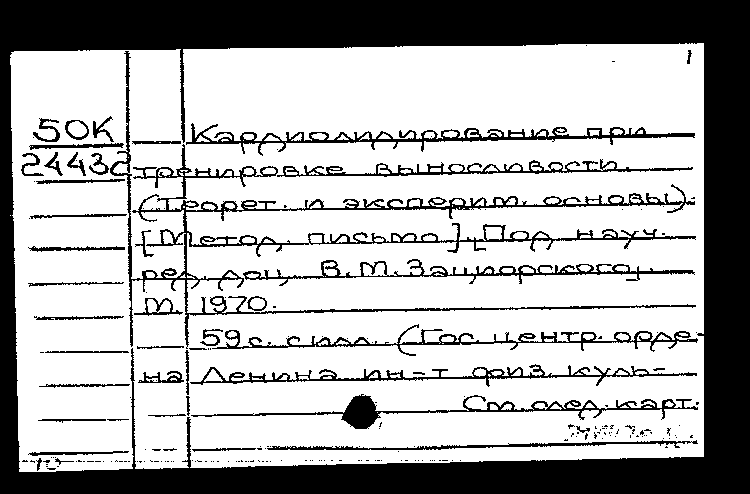 1
50К
24432
Кардиолидирование при
тренировке выносливости.
(Теорет. и эксперим. основы).
[Метод. письмо]. Под науч.
ред. доц. В.М. Зациорского.
М. 1970.
59 с. с илл. (Гос. центр. орде-
на Ленина ин-т физ. куль-
См. след. карт.
10